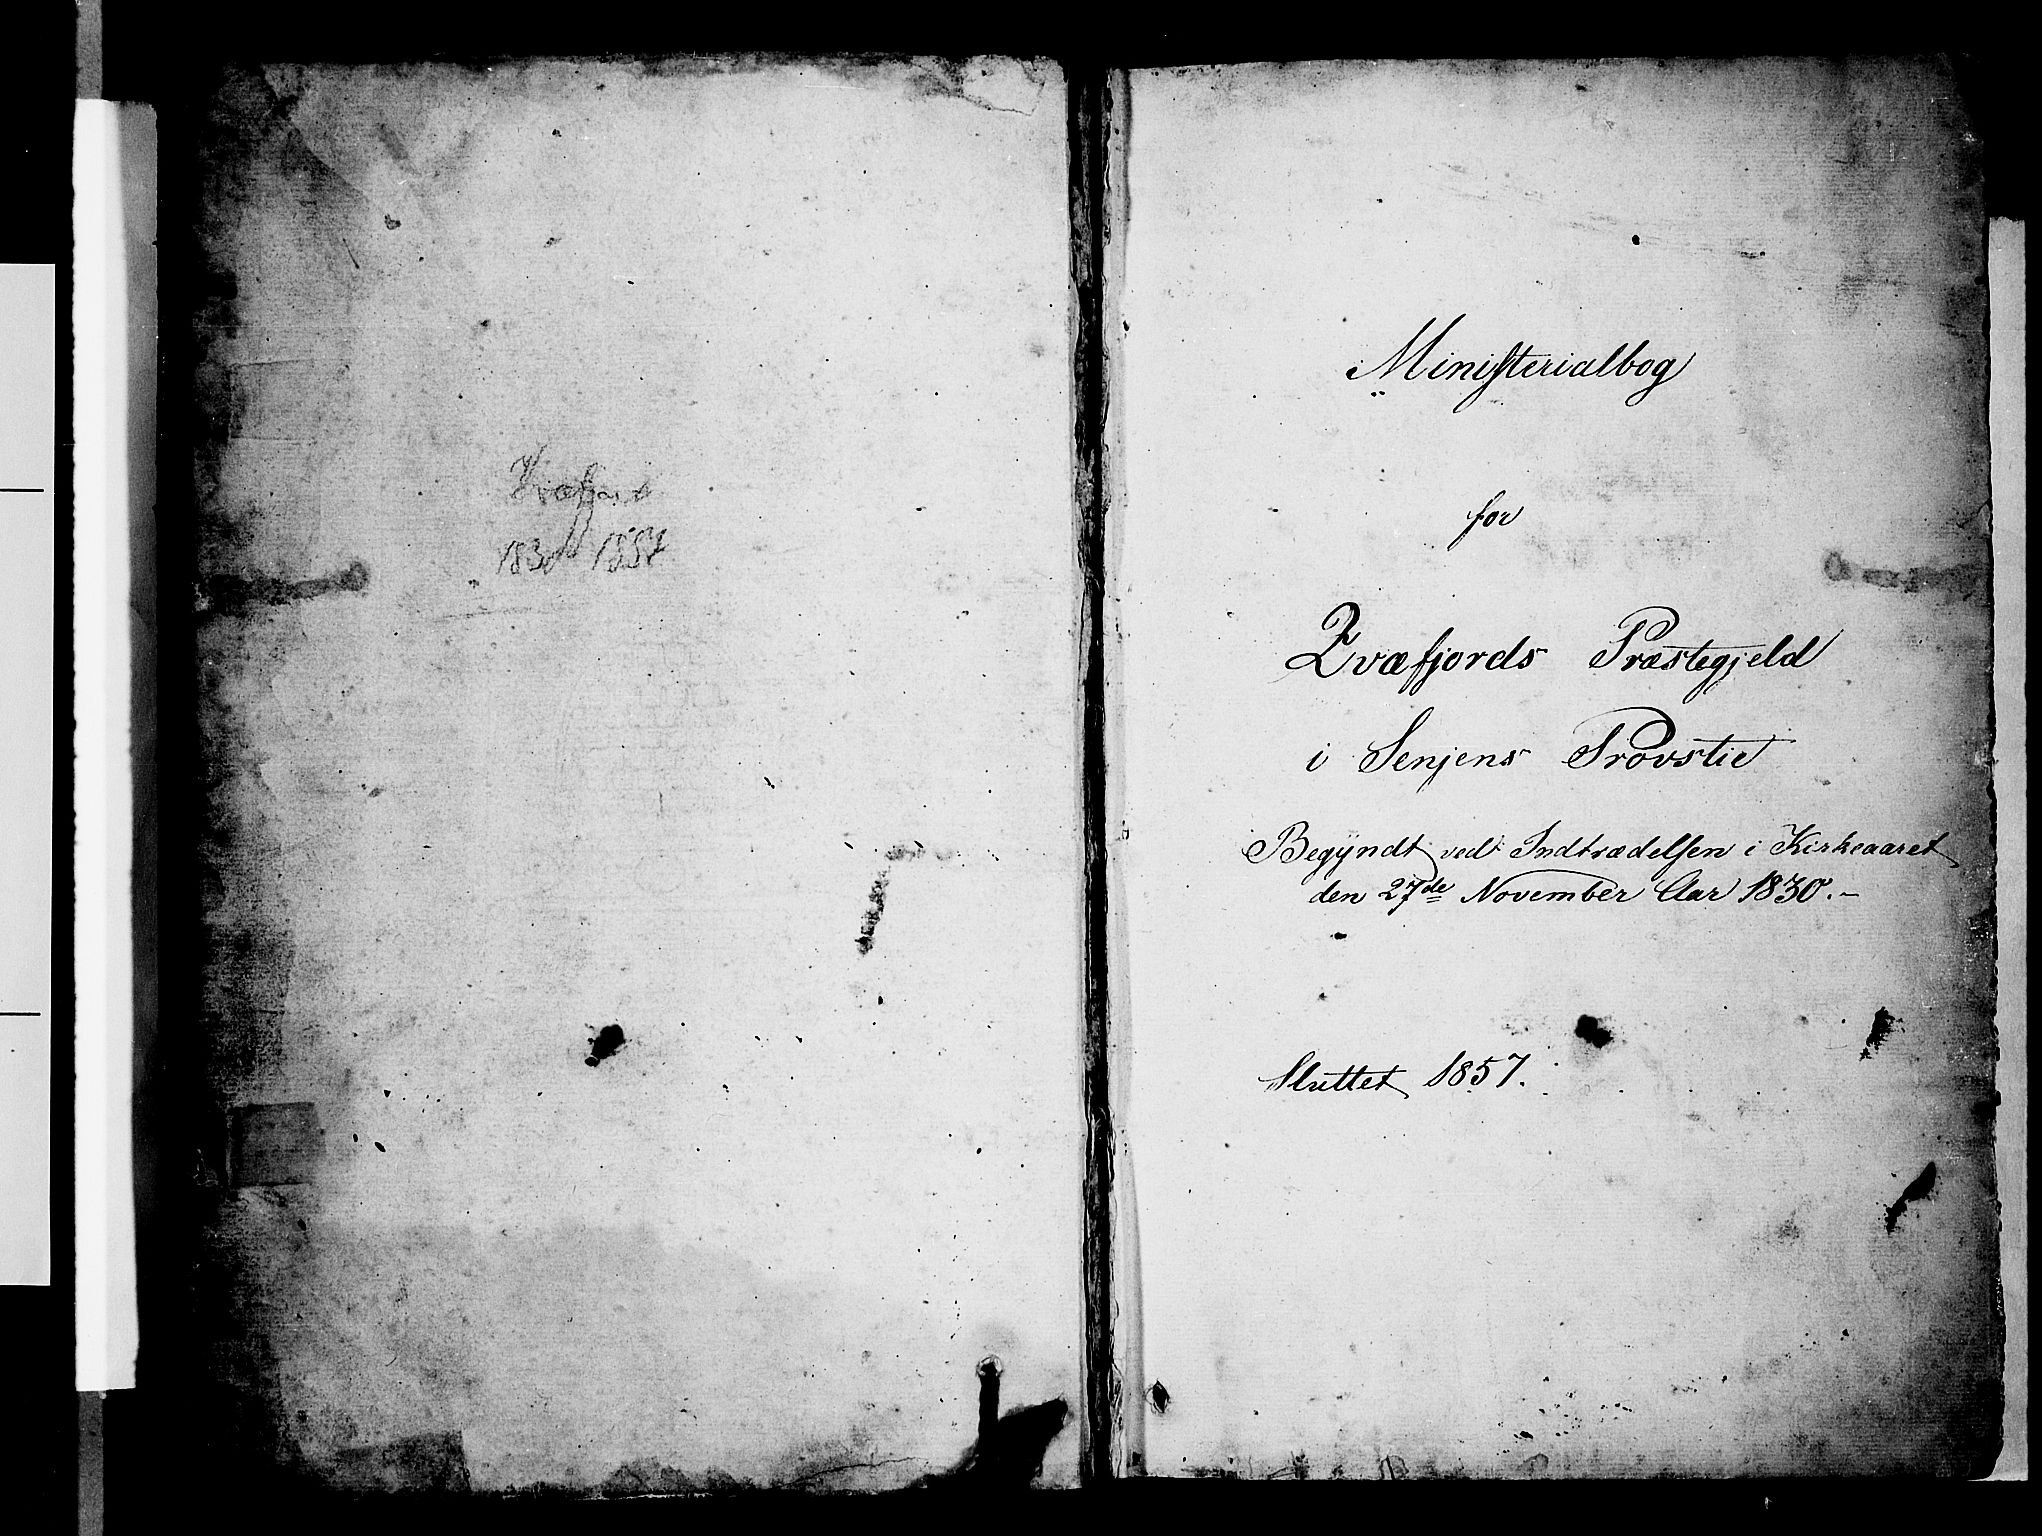 Kvæfjord
1830 1857
Ministerialbog
for
Qvæfjords Præstegjeld
i Senjens Provstie
Begyndt ved Indtrædelsen i Kirkeaaret
den 27de November Aar 1830.-
Sluttet 1857.